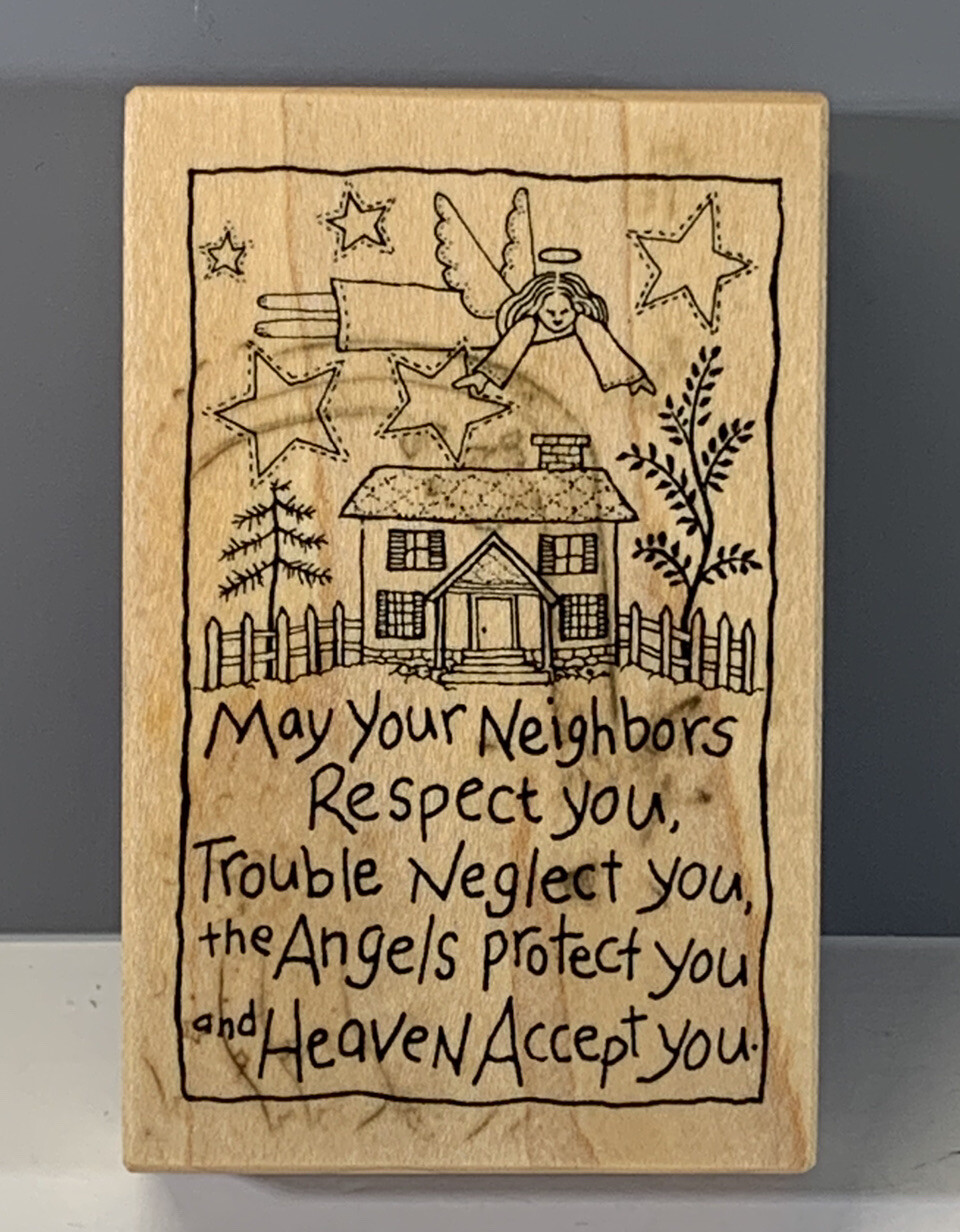 May your Neighbors
Respect you,
Trouble Neglect you,
the Angels protect you
and Heaven Accept you.